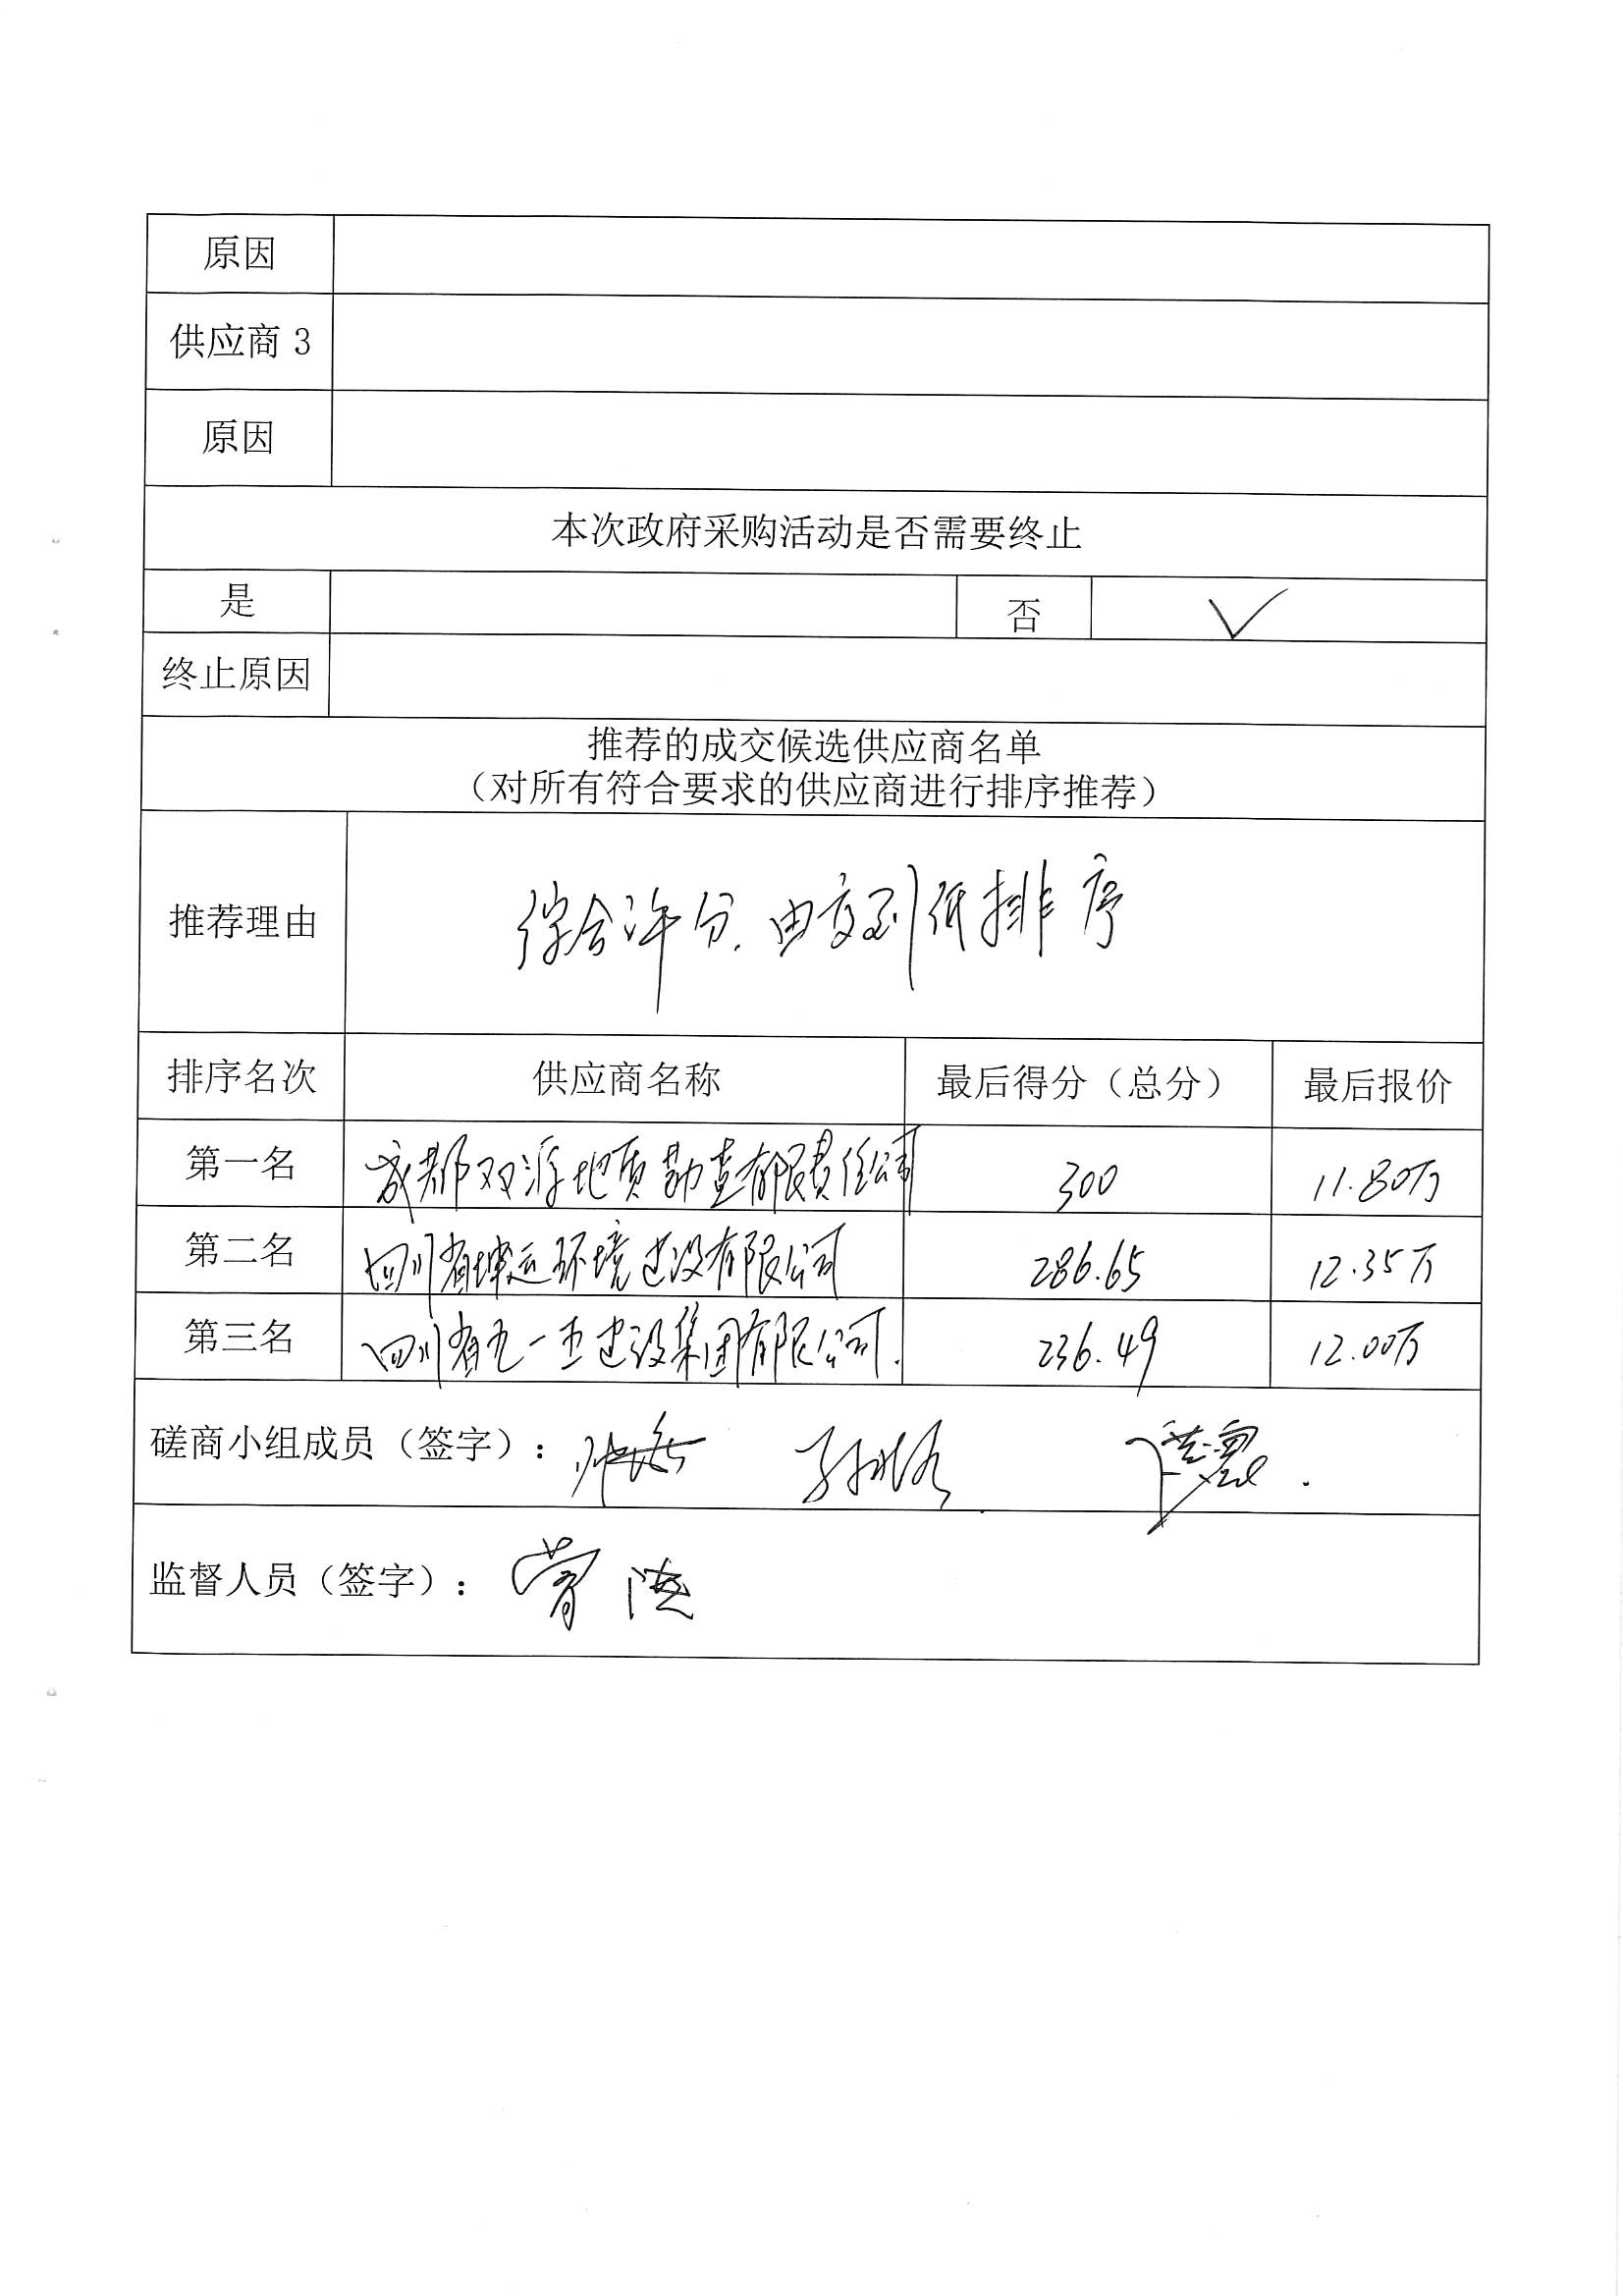 原因
供应商 3
原因
本次政府采购活动是否需要终止
是 否 √
终止原因
推荐的成交候选供应商名单
（对所有符合要求的供应商进行排序推荐）
推荐理由 综合评分，由高到低排序
排序名次 供应商名称 最后得分（总分） 最后报价
第一名 成都双源地质勘查有限责任公司 300 11.80万
第二名 四川省坤运环境建设有限公司 286.65 12.35万
第三名 四川省九一五建设集团有限公司. 236.49 12.00万
磋商小组成员（签字）：
监督人员（签字）：